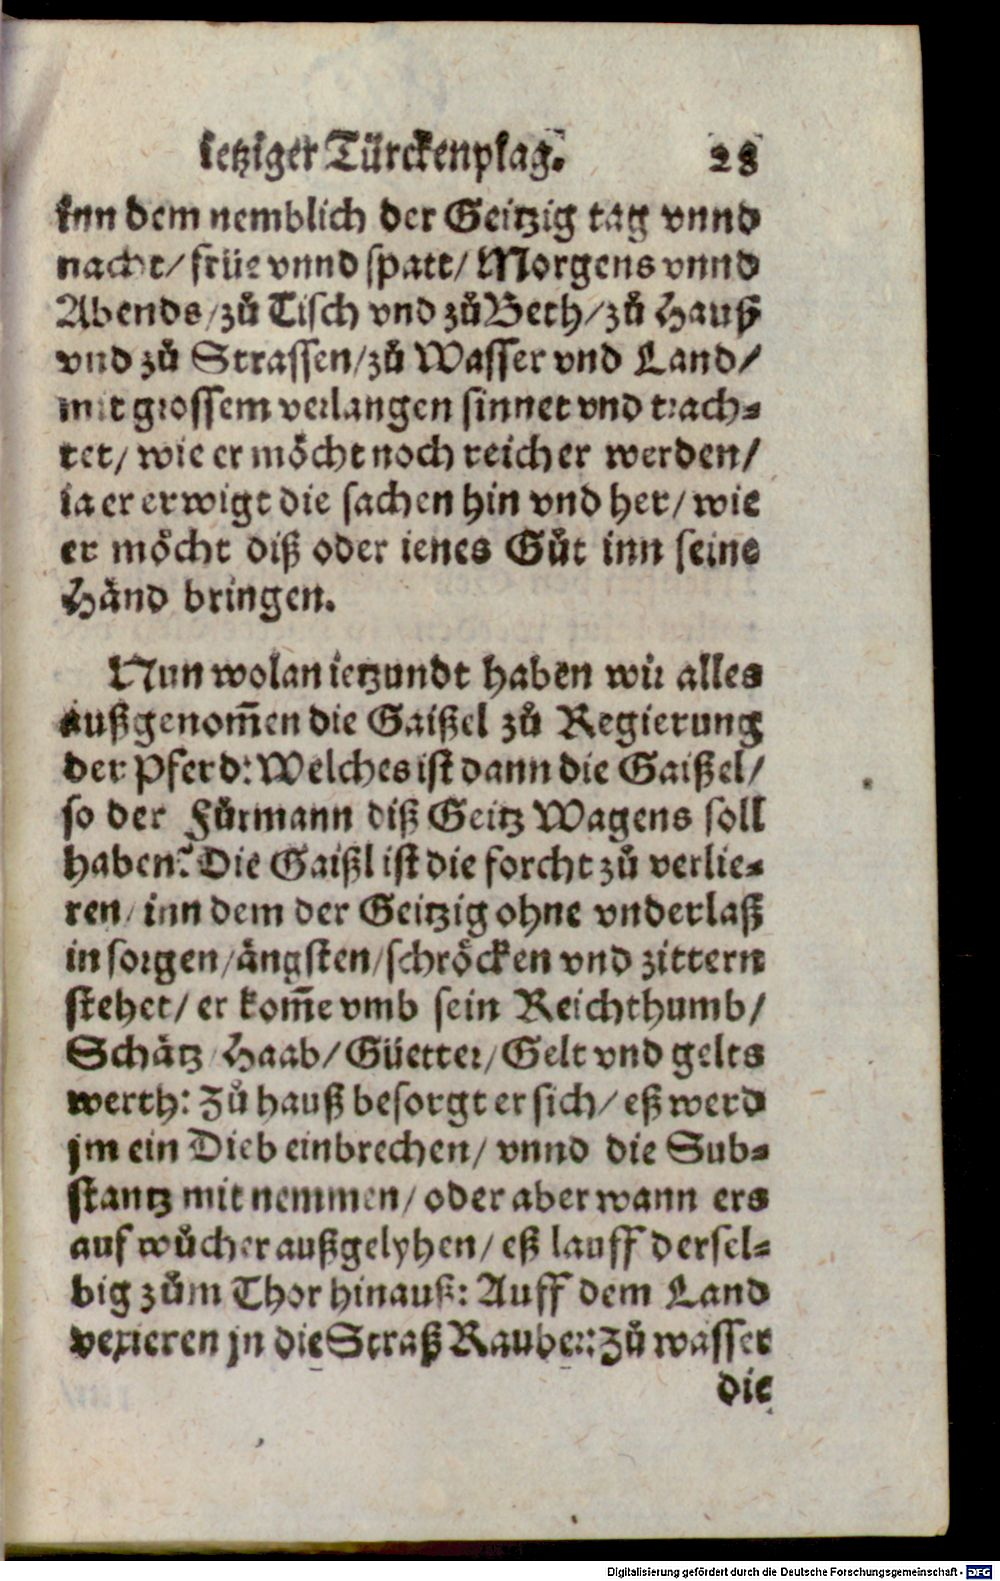 ietziger Türckenplag. 28
inn dem nemblich der Geitzig tag vnnd
nacht/ früe vnnd spatt/ Morgens vnnd
Abends/ zů Tisch vnd zů Beth/ zů Hauß
vnd zů Strassen/ zů Wasser vnd Land/
mit grossem verlangen sinnet vnd trach-
tet/ wie er möcht noch reicher werden/
ia er erwigt die sachen hin vnd her/ wie
er möcht diß oder ienes Gůt inn seine
Händ bringen.
Nun wolan ietzundt haben wir alles
außgenom̃en die Gaißel zů Regierung
der Pferd: Welches ist dann die Gaißel/
so der Fůrmann diß Geitz Wagens soll
haben? Die Gaißl ist die forcht zů verlie-
ren/ inn dem der Geitzig ohne vnderlaß
in sorgen/ ängsten/ schröcken vnd zittern
stehet/ er kom̃e vmb sein Reichthumb/
Schätz/ Haab/ Güetter/ Gelt vnd gelts
werth: Zů hauß besorgt er sich/ eß werd
jm ein Dieb einbrechen/ vnnd die Sub-
stantz mit nemmen/ oder aber wann ers
auf wůcher außgelyhen/ eß lauff dersel-
big zům Thor hinauß: Auff dem Land
vexieren jn die Straß Rauber: Zů wasser
die
Digitalisierung gefördert durch die Deutsche Forschungsgemeinschaft - DFG